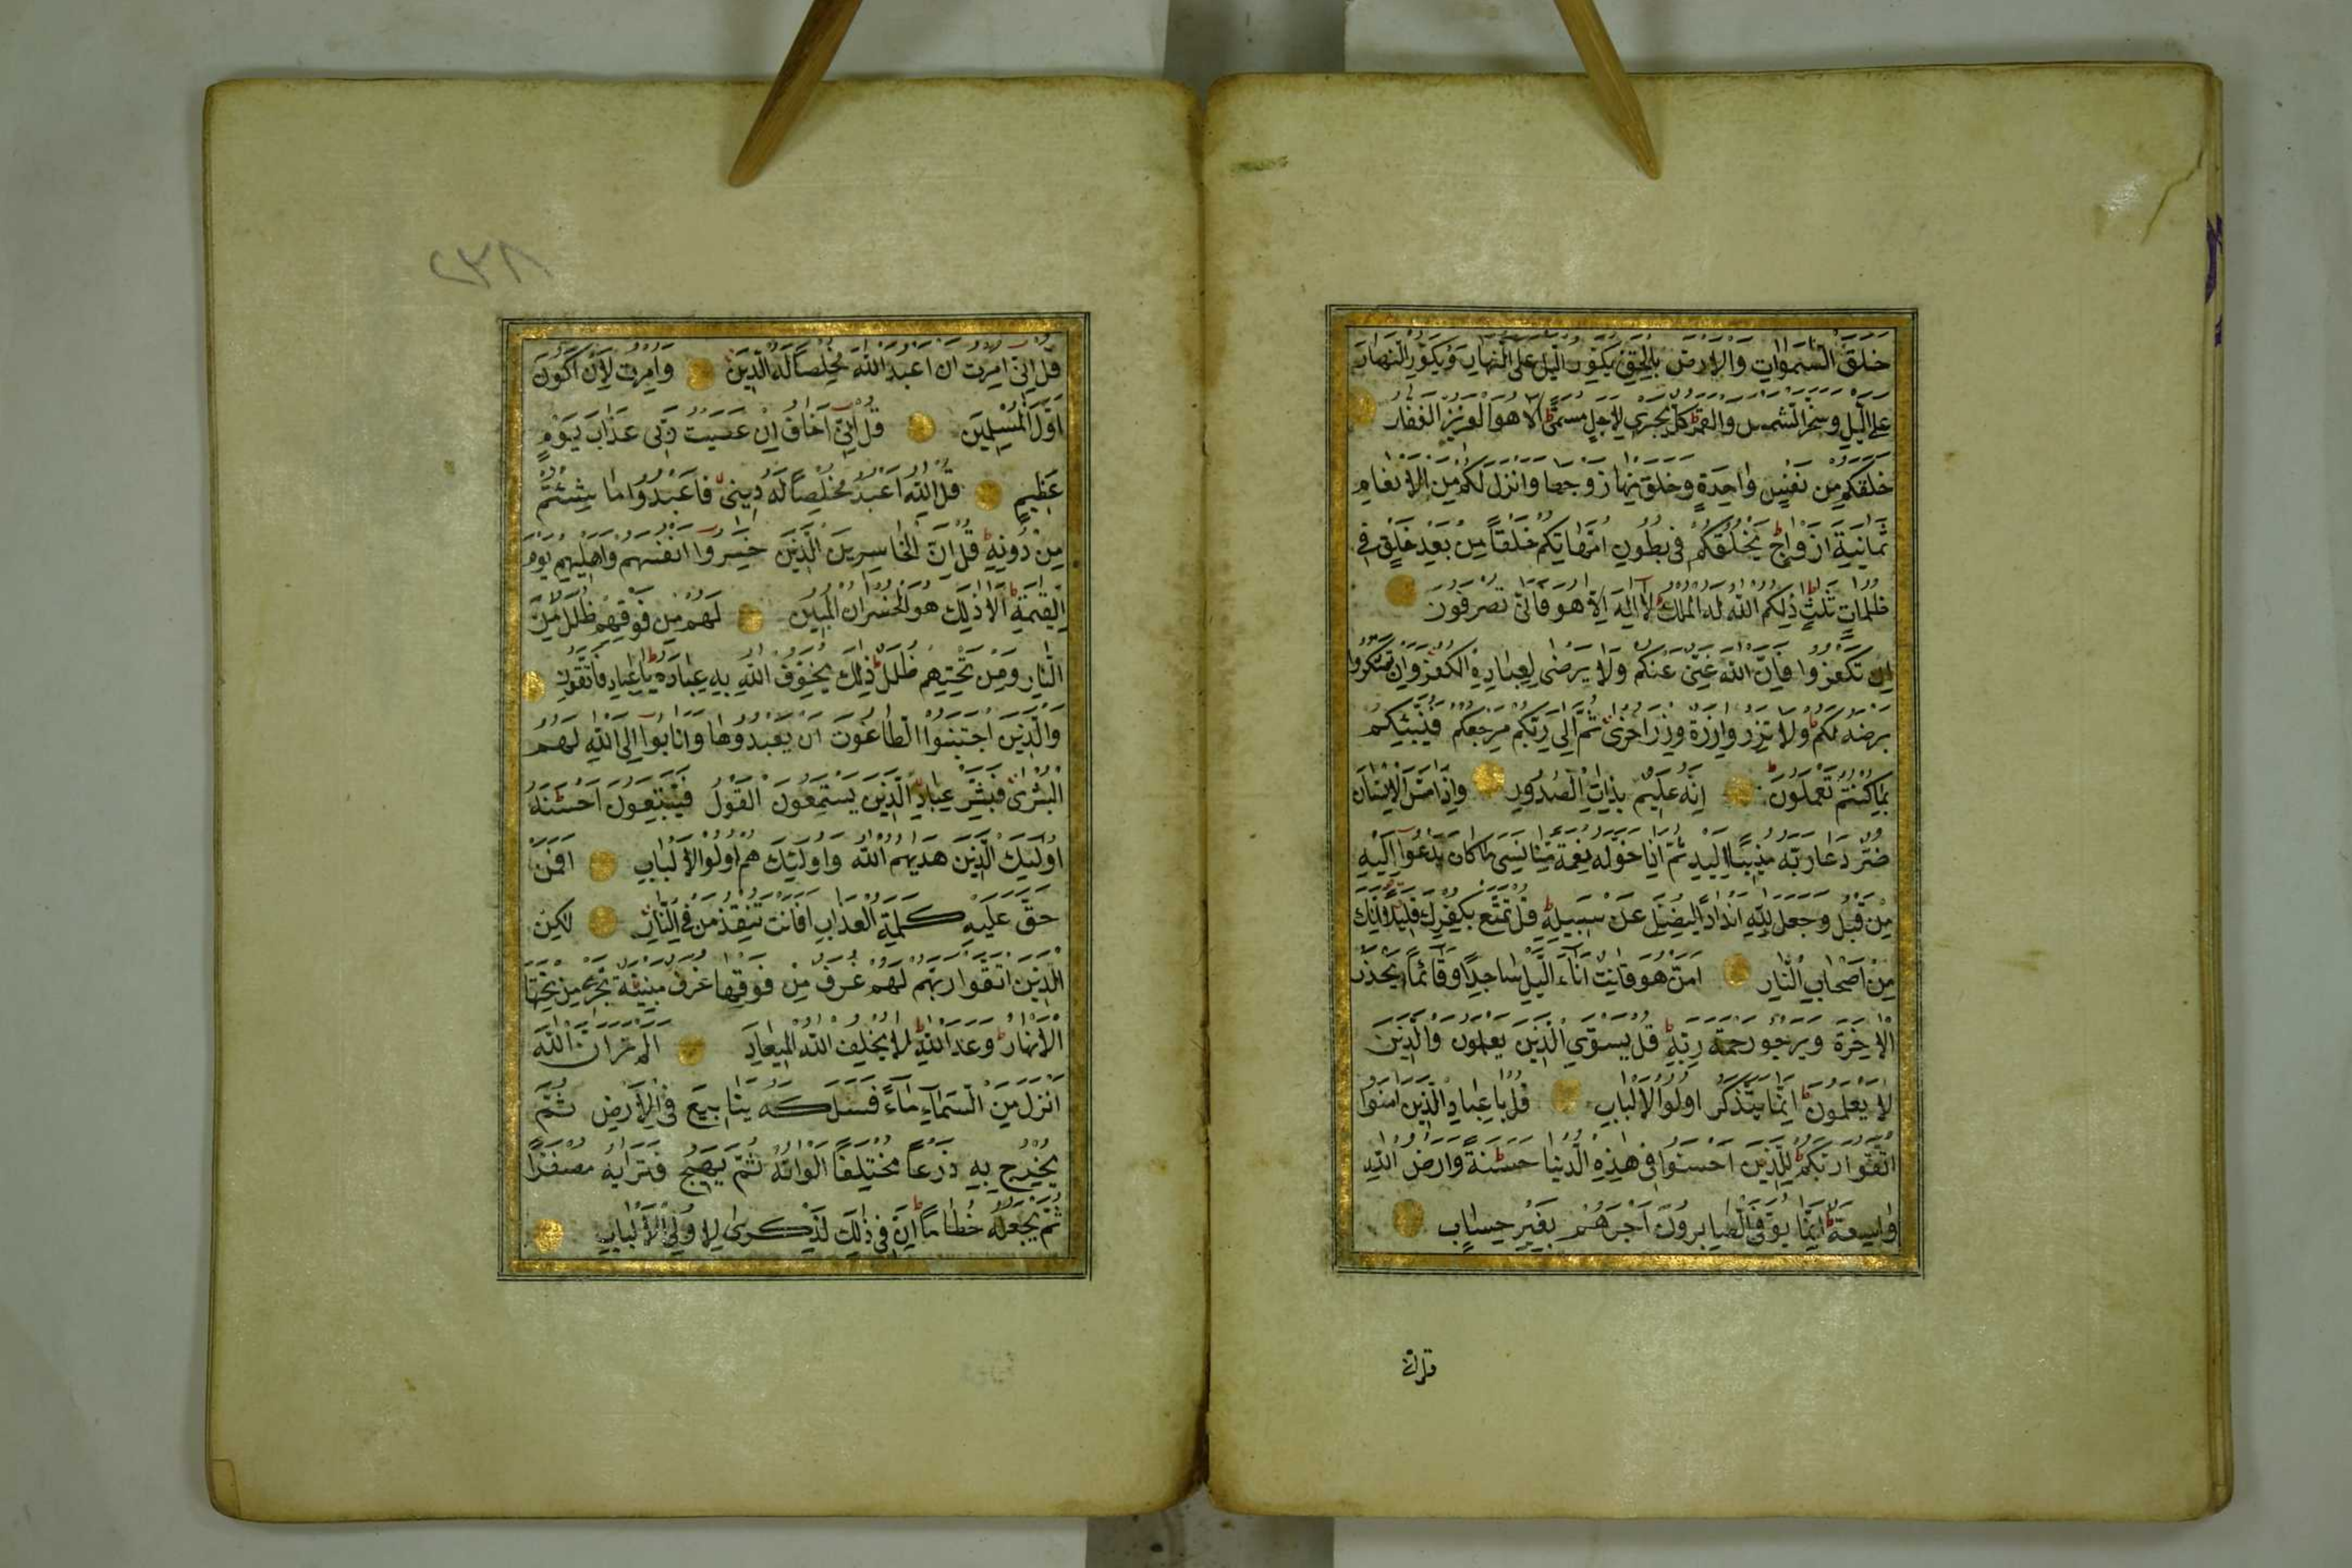 خَلَقَ السَّمٰوَاتِ وَالْاَرْضَ بِالْحَقِّ يُكَوِّرُ الَّيْلَ عَلَى النَّهَارِ وَيُكَوِّرُ النَّهَارَ
عَلَى الَّيْلِ وَسَخَّرَ الشَّمْسَ وَالْقَمَرَ كُلٌّ يَجْرِي لِاَجَلٍ مُسَمًّى اَلَا هُوَ الْعَزِيزُ الْغَفَّارُ
خَلَقَكُمْ مِنْ نَفْسٍ وَاحِدَةٍ وَخَلَقَ مِنْهَا زَوْجَهَا وَاَنْزَلَ لَكُمْ مِنَ الْاَنْعَامِ
ثَمَانِيَةَ اَزْوَاجٍ يَخْلُقُكُمْ فِي بُطُونِ اُمَّهَاتِكُمْ خَلْقًا مِنْ بَعْدِ خَلْقٍ فِي
ظُلُمَاتٍ ثَلٰثٍ ذٰلِكُمُ اللّٰهُ لَهُ الْمُلْكُ لَا اِلٰهَ اِلَّا هُوَ فَاَنّٰى تُصْرَفُونَ
اِنْ تَكْفُرُوا فَاِنَّ اللّٰهَ غَنِيٌّ عَنْكُمْ وَلَا يَرْضٰى لِعِبَادِهِ الْكُفْرَ وَاِنْ تَشْكُرُوا
يَرْضَهُ لَكُمْ وَلَا تَزِرُ وَازِرَةٌ وِزْرَ اُخْرٰى ثُمَّ اِلٰى رَبِّكُمْ مَرْجِعُكُمْ فَيُنَبِّئُكُمْ
بِمَا كُنْتُمْ تَعْمَلُونَ اِنَّهُ عَلِيمٌ بِذَاتِ الصُّدُورِ وَاِذَا مَسَّ الْاِنْسَانَ
ضُرٌّ دَعَا رَبَّهُ مُنِيبًا اِلَيْهِ ثُمَّ اِذَا خَوَّلَهُ نِعْمَةً مِنْهُ نَسِيَ مَا كَانَ يَدْعُوا اِلَيْهِ
مِنْ قَبْلُ وَجَعَلَ لِلّٰهِ اَنْدَادًا لِيُضِلَّ عَنْ سَبِيلِهِ قُلْ تَمَتَّعْ بِكُفْرِكَ قَلِيلًا اِنَّكَ
مِنْ اَصْحَابِ النَّارِ اَمَّنْ هُوَ قَانِتٌ اٰنَاءَ الَّيْلِ سَاجِدًا وَقَائِمًا يَحْذَرُ
الْاٰخِرَةَ وَيَرْجُو رَحْمَةَ رَبِّهِ قُلْ يَسْتَوِي الَّذِينَ يَعْلَمُونَ وَالَّذِينَ
لَا يَعْلَمُونَ اِنَّمَا يَتَذَكَّرُ اُولُوا الْاَلْبَابِ قُلْ يَا عِبَادِ الَّذِينَ اٰمَنُوا
اتَّقُوا رَبَّكُمْ لِلَّذِينَ اَحْسَنُوا فِي هٰذِهِ الدُّنْيَا حَسَنَةٌ وَاَرْضُ اللّٰهِ
وَاسِعَةٌ اِنَّمَا يُوَفَّى الصَّابِرُونَ اَجْرَهُمْ بِغَيْرِ حِسَابٍ
قل انى
٢٣٨
قُلْ اِنِّي اُمِرْتُ اَنْ اَعْبُدَ اللّٰهَ مُخْلِصًا لَهُ الدِّينَ وَاُمِرْتُ لِاَنْ اَكُونَ
اَوَّلَ الْمُسْلِمِينَ قُلْ اِنِّي اَخَافُ اِنْ عَصَيْتُ رَبِّي عَذَابَ يَوْمٍ
عَظِيمٍ قُلِ اللّٰهَ اَعْبُدُ مُخْلِصًا لَهُ دِينِي فَاعْبُدُوا مَا شِئْتُمْ
مِنْ دُونِهِ قُلْ اِنَّ الْخَاسِرِينَ الَّذِينَ خَسِرُوا اَنْفُسَهُمْ وَاَهْلِيهِمْ يَوْمَ
الْقِيٰمَةِ اَلَا ذٰلِكَ هُوَ الْخُسْرَانُ الْمُبِينُ لَهُمْ مِنْ فَوْقِهِمْ ظُلَلٌ مِنَ
النَّارِ وَمِنْ تَحْتِهِمْ ظُلَلٌ ذٰلِكَ يُخَوِّفُ اللّٰهُ بِهِ عِبَادَهُ يَا عِبَادِ فَاتَّقُونِ
وَالَّذِينَ اجْتَنَبُوا الطَّاغُوتَ اَنْ يَعْبُدُوهَا وَاَنَابُوا اِلَى اللّٰهِ لَهُمُ
الْبُشْرٰى فَبَشِّرْ عِبَادِ الَّذِينَ يَسْتَمِعُونَ الْقَوْلَ فَيَتَّبِعُونَ اَحْسَنَهُ
اُولٰئِكَ الَّذِينَ هَدٰيهُمُ اللّٰهُ وَاُولٰئِكَ هُمْ اُولُوا الْاَلْبَابِ اَفَمَنْ
حَقَّ عَلَيْهِ كَلِمَةُ الْعَذَابِ اَفَاَنْتَ تُنْقِذُ مَنْ فِي النَّارِ لٰكِنِ
الَّذِينَ اتَّقَوْا رَبَّهُمْ لَهُمْ غُرَفٌ مِنْ فَوْقِهَا غُرَفٌ مَبْنِيَّةٌ تَجْرِي مِنْ تَحْتِهَا
الْاَنْهَارُ وَعْدَ اللّٰهِ لَا يُخْلِفُ اللّٰهُ الْمِيعَادَ اَلَمْ تَرَ اَنَّ اللّٰهَ
اَنْزَلَ مِنَ السَّمَاءِ مَاءً فَسَلَكَهُ يَنَابِيعَ فِي الْاَرْضِ ثُمَّ
يُخْرِجُ بِهِ زَرْعًا مُخْتَلِفًا اَلْوَانُهُ ثُمَّ يَهِيجُ فَتَرٰيهُ مُصْفَرًّا
ثُمَّ يَجْعَلُهُ حُطَامًا اِنَّ فِي ذٰلِكَ لَذِكْرٰى لِاُولِي الْاَلْبَابِ